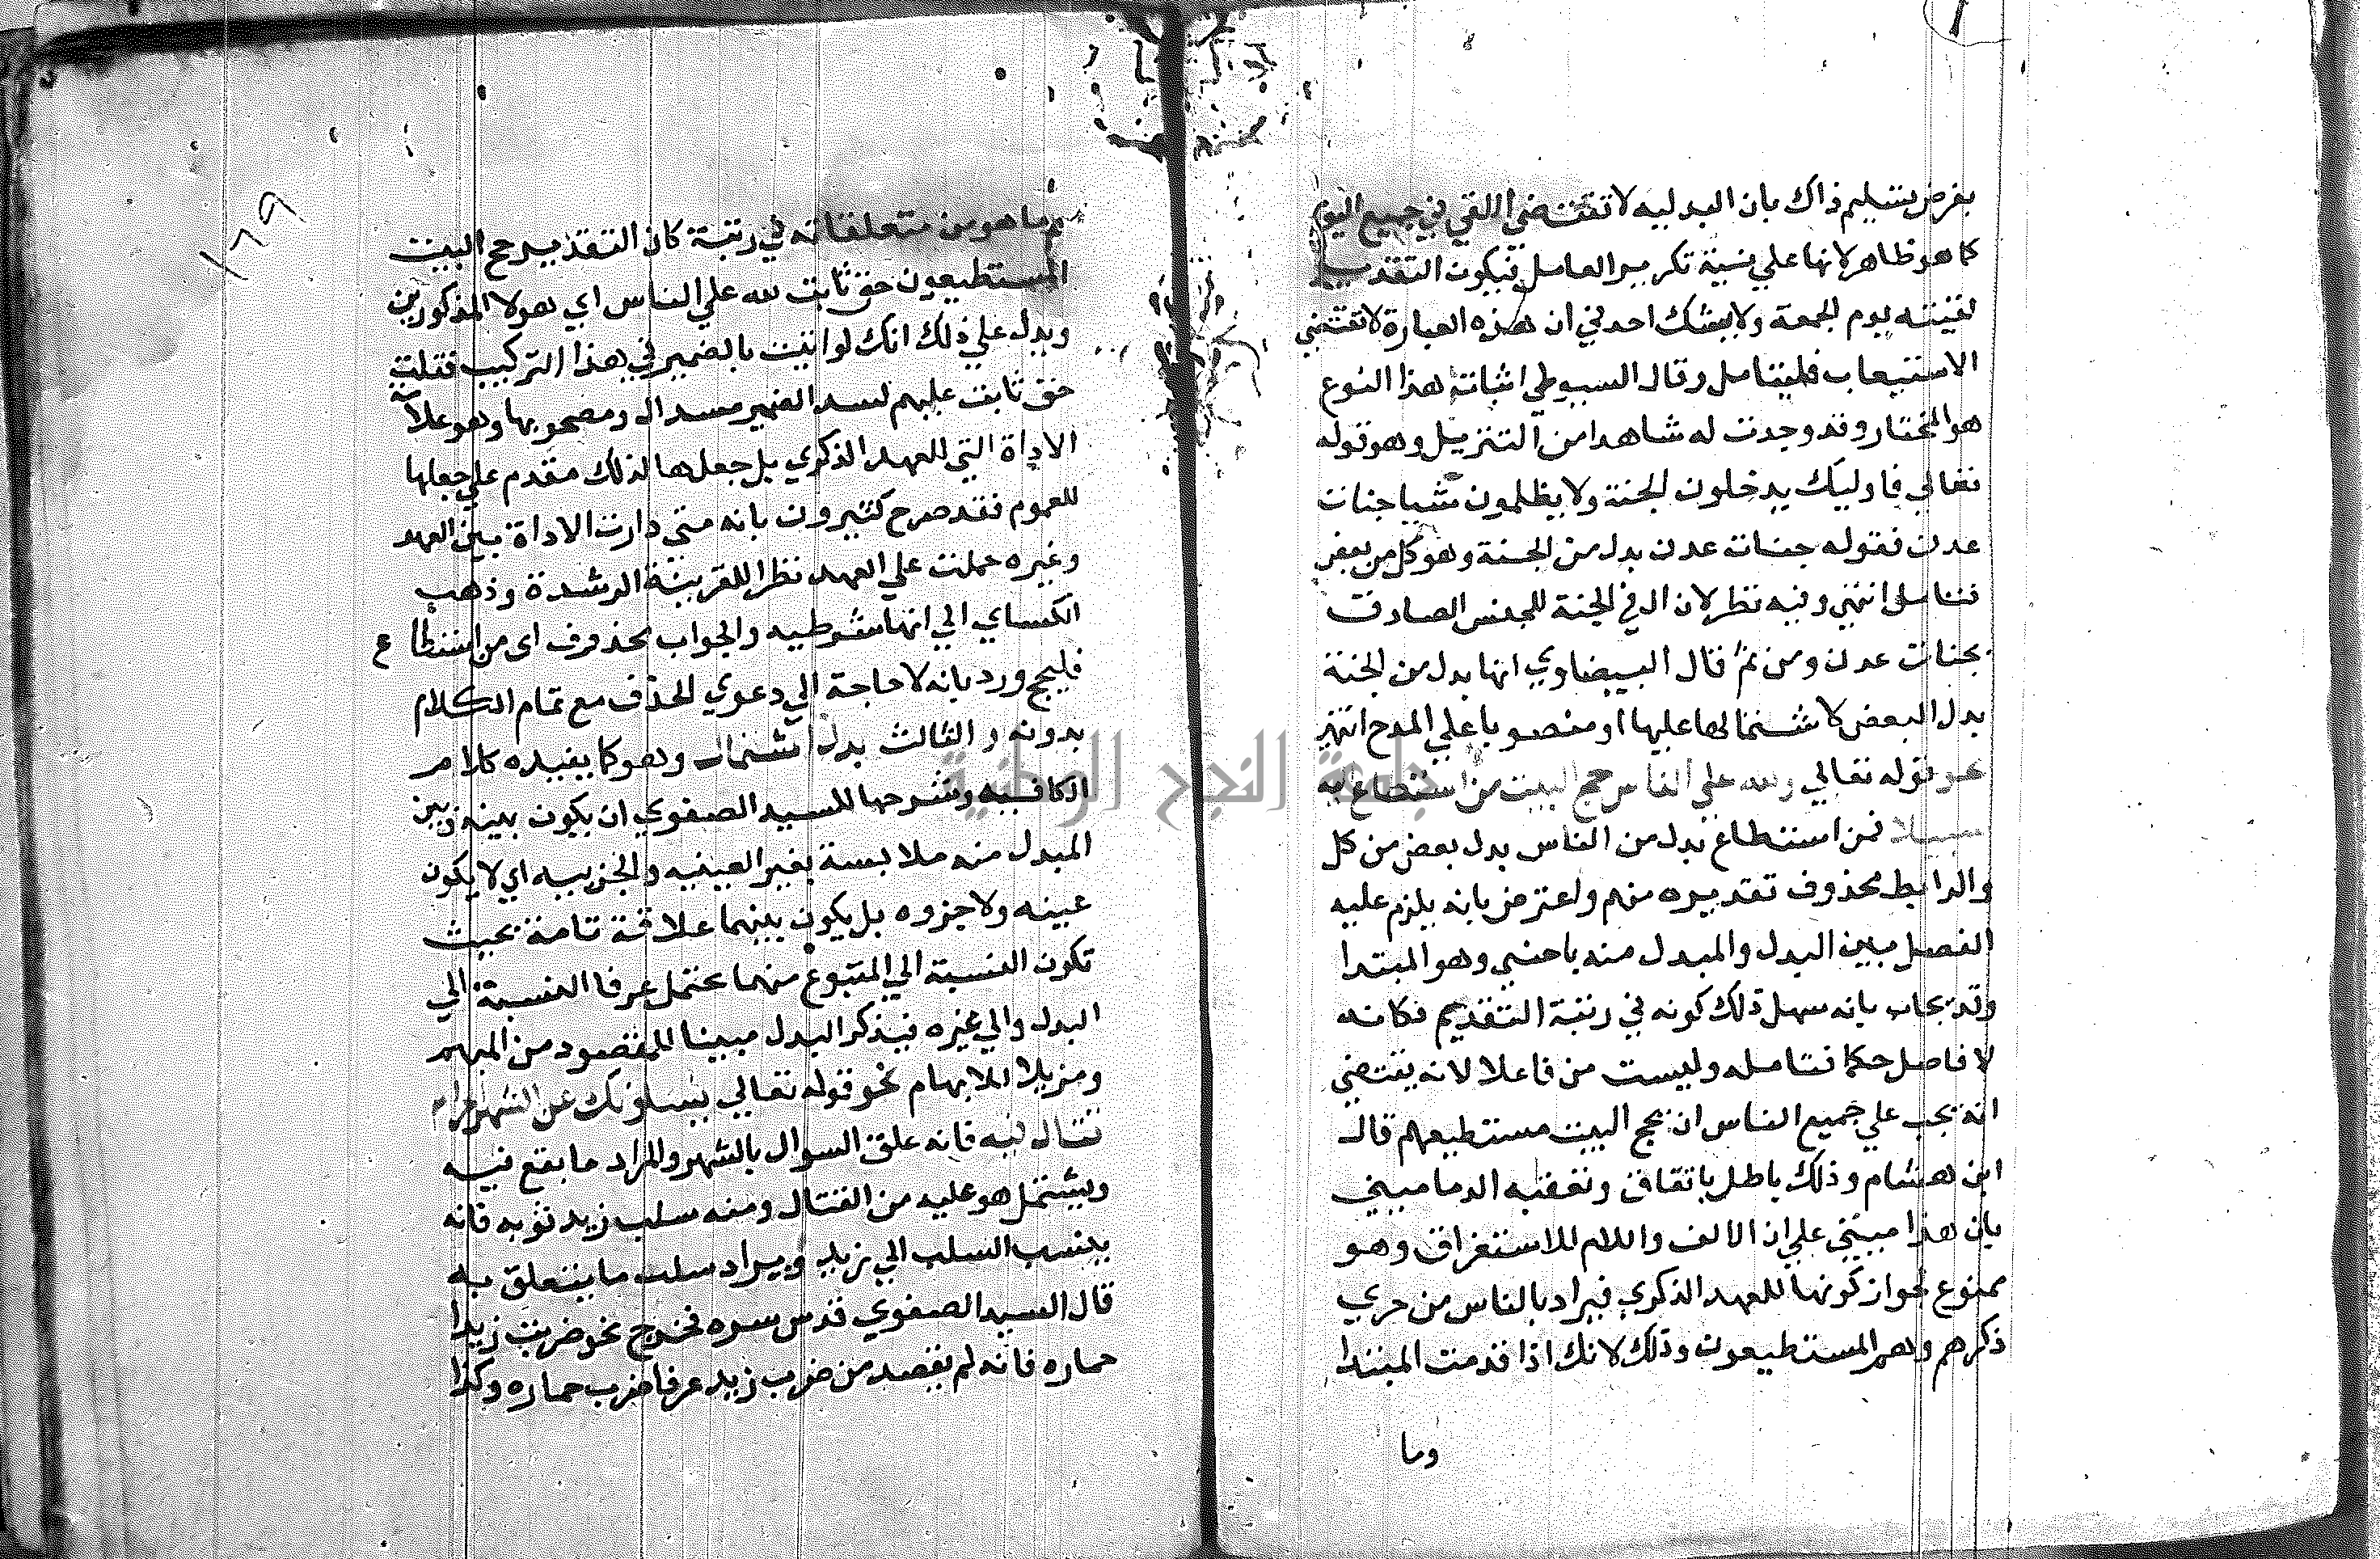 بفرض بتسليم ذاك بان البدليه لا تقتضي اللقي في جميع اليوم
كما هو ظاهر لانها علي نسبة تكرير العامل فيكون التقدير
لقيته يوم الجمعة ولا يشك احد في ان هذه العبارة لا تقتضي
الاستيعاب فليتامل وقال السيوطي اثباته هذا النوع
هو المختار وقد وجدت له شاهدا من التنزيل وهو قوله
تعالي فاوليك يدخلون الجنة ولا يظلمون شيا جنات
عدن فقوله جنات عدن بدل من الجنة وهو كل من بعض
فتامل انتهي وفيه نظر لان ال في الجنة للجنس الصادق
بجنات عدن ومن ثم قال البيضاوي انها بدل من الجنة
بدل البعض لاشتمالها عليها او منصوبا علي المدح انتهي
نحو قوله تعالي ولله علي الناس حج البيت من استطاع اليه
سبيلا فمن استطاع بدل من الناس بدل بعض من كل
والرابط محذوف تقديره منهم واعترض بانه يلزم عليه
الفصل بين البدل والمبدل منه باجنبي وهو المبتدا
وقد يجاب بانه سهل ذلك كونه في رتبة التقديم فكانه
لا فاصل حكما فتامله وليست من فاعلا لانه يقتضي
انه تجب علي جميع الناس ان يحج البيت مستطيعهم قال
ابن هشام وذلك باطل باتفاق وتعقبه الدماميني
بان هذا مبني علي ان الالف واللام للاستغراق وهو
ممنوع لجواز كونها للعهد الذكري فيراد بالناس من جري
ذكرهم وهم المستطيعون وذلك لانك اذا قدمت المبتدا
وما
١٦٩
وما هو من متعلقاته في رتبة كان التقدير حج البيت
المستطيعون حق ثابت لله علي الناس اي هولا المذكورين
ويدل علي ذلك انك لو اتيت بالضمير في هذا التركيب فقلت
حق ثابت عليهم لسد الضمير مسد ال ومصحوبها وهو علامة
الاداة التي للعهد الذكري بل جعلها لذلك مقدم علي جعلها
للعموم فقد صرح كثيرون بانه متي دارت الاداة بين العهد
وغيره حملت علي العهد نظرا للقرينة المرشدة وذهب
الكساي الي انها شرطيه والجواب محذوف اي من استطاع
فليحج ورد بانه لا حاجة الي دعوي الحذف مع تمام الكلام
بدونه والثالث بدل اشتمال وهو كما يفيده كلام
الكافيه وشرحها للسيد الصفوي ان يكون بينه وبين
المبدل منه ملابسة بغير العينيه والجزييه اي لا يكون
عينه ولا جزوه بل يكون بينهما علاقة تامة بحيث
تكون النسبة الي المتبوع منهما تحتمل عرفا النسبة الي
البدل والي غيره فيذكر البدل مبينا للمقصود من المبهم
ومزيلا للابهام نحو قوله تعالي يسلونك عن الشهر الحرام
قتال فيه فانه علق السوال بالشهر والمراد ما يقع فيه
ويشتمل هو عليه من القتال ومنه سلب زيد ثوبه فانه
ينسب السلب الي زيد ويراد سلب ما يتعلق به
قال السيد الصفوي قدس سره فخرج نحو ضربت زيدا
حماره فانه لم يقصد من ضرب زيد عرفا ضرب حماره وكذا
جامعة النجاح الوطنية